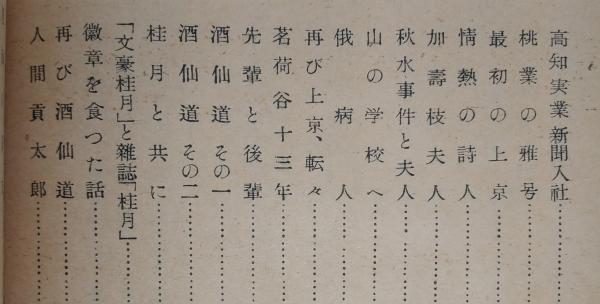 高知実業新聞入社
桃葉の雅号
最初の上京
情熱の詩人
加壽枝夫人
秋水事件と夫人
山の学校へ
俄病人
再び上京、転々
茗荷谷十三年
先輩と後輩
酒仙道その一
酒仙道その二
桂月と共に
「文豪桂月」と雑誌「桂月」
徽章を食つた話
再び酒仙道
人間貢太郎